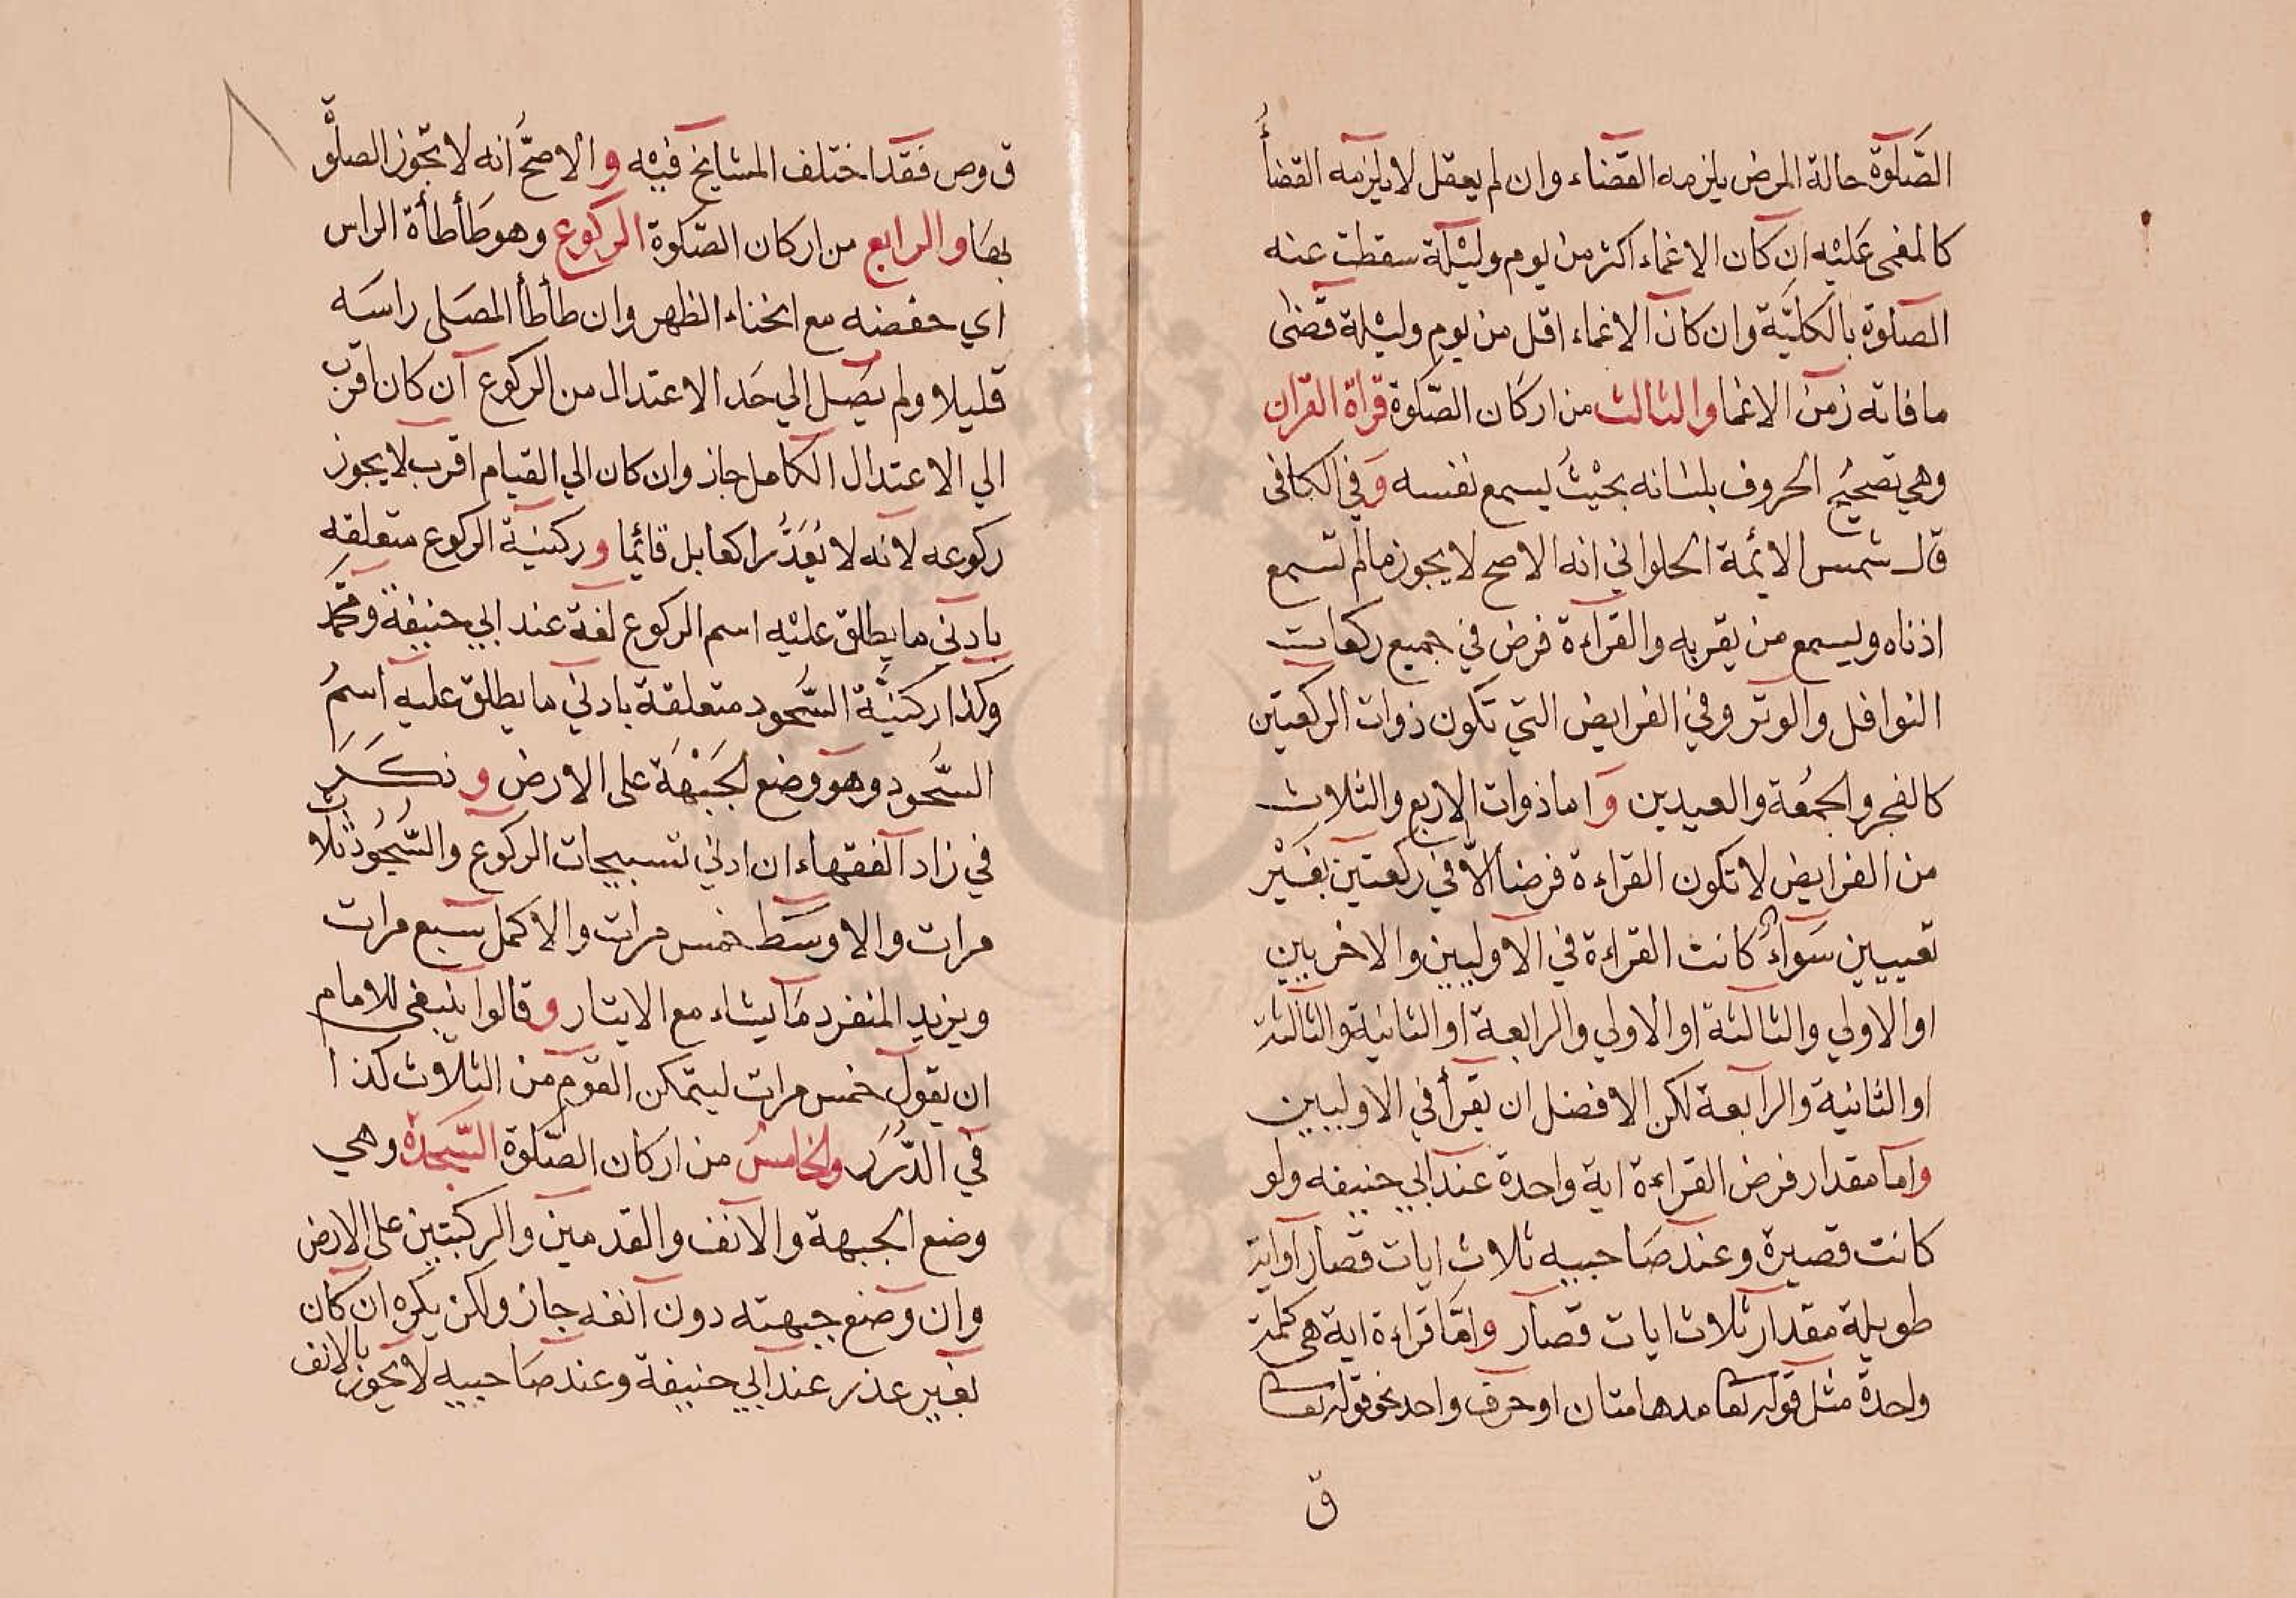 الصَّلوٰة حالة المرض يلزمه القضاء وان لم يعقل لا يلزمه القضأُ
كالمغمى عَليْه ان كان الاغماء اكثر من يوم وليْلة سقطت عنه
الصلوة بالكليَّة وان كان الاغماء اقل من يوم وليْلة قضى
ما فاته زمن الاغما والثالث من اركان الصَّلوة قراة القران
وهي تصحيح الحروف بلسانه بحيْثُ ليسمع نفسه وَفي الكافى
قال شمس الائمة الحلواني انه الاصح لا يجوز مالم تسمع
اذناه ويسمع من يقربه والقراءة فرض في جميع ركعات
النوافل والوتر وفي الفرايض التي تكون ذوات الركعتين
كالفجر والجمُعة والعيدين وَ اما ذوات الاربع والثلاث
من الفرايض لا تكون القراءة فرضا الّا في ركعتين بغَيْر
تعييين سَوآءٌ كانت القراءة في الاوليين والاخريين
او الاولي والثالثة او الاولي والرابعة او الثانية والثالثة
او الثانية والرابعة لكن الافضل ان يقرأ في الاوليين
واما مقدار فرض القراءة اية واحدة عند ابي حنيفه ولو
كانت قصيرة وعند صَاحبيه ثلاث ايات قصار او اية
طويلة مقدار ثلاث ايات قصار وامَّا قراءة اية هى كلمة
واحدة مثل قوله تعا مدهامتان او حرف واحد نحو قوله تعا
ق
ق وص فقد اختلف المشايخ فيْه والاصحُّ انه لا تجوز الصلوٰة
بهَا والرابع من اركان الصَّلوة الركوع وهو طَأطأة الراس
اي خفضه مع انحناء الظهر وان طأطأ المصَلى راسَه
قليلا ولم يصَل الي حَد الاعتدال من الركوع ان كان اقرب
الي الاعتدال الكامل جاز وان كان الي القيام اقرب لا يجوز
ركوعه لانه لا يُعَدُّ راكعا بل قائما وركنيَة الركوع متعلقه
بادني ما يطلق عليْه اسم الركوع لغة عند ابي حنيفة ومحَمد
وكذا ركنيَّة السَّجود متعلقة بادني ما يطلق عليه اسمُ
السَّجود وهو وضع الجَبْهَة على الارض و ذكَرَ
في زاد الفقهاء ان ادني تسبيحات الركوع والسُّجُودُ ثلاث
مرات والاوسَط خمس مرات والاكمل سبع مرات
ويزيد المنفرد مَا يشاء مع الايتار وقالوا ينبغى للامام
ان يقول خمس مرات ليتمكن القوم من الثلاث كذا
في الدُّرَر والخامسُ من اركان الصَّلوة السَّجدة وهي
وضع الجبهة والانف والقدمين والركبتين على الارض
وان وضع جبهته دون انفه جاز ولكن يكره ان كان
بغير عذر عند ابي حنيفة وعند صَاحبيه لا يجوز بالانف